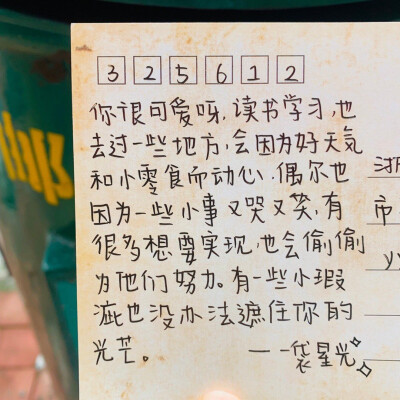 325612
你很可爱呀，读书学习，也
去过一些地方，会因为好天气
和小零食而动心，偶尔也
因为一些小事又哭又笑，有
很多想要实现，也会偷偷
为他们努力。有一些小瑕
疵也没办法遮住你的
光芒。 ——袋星光
市